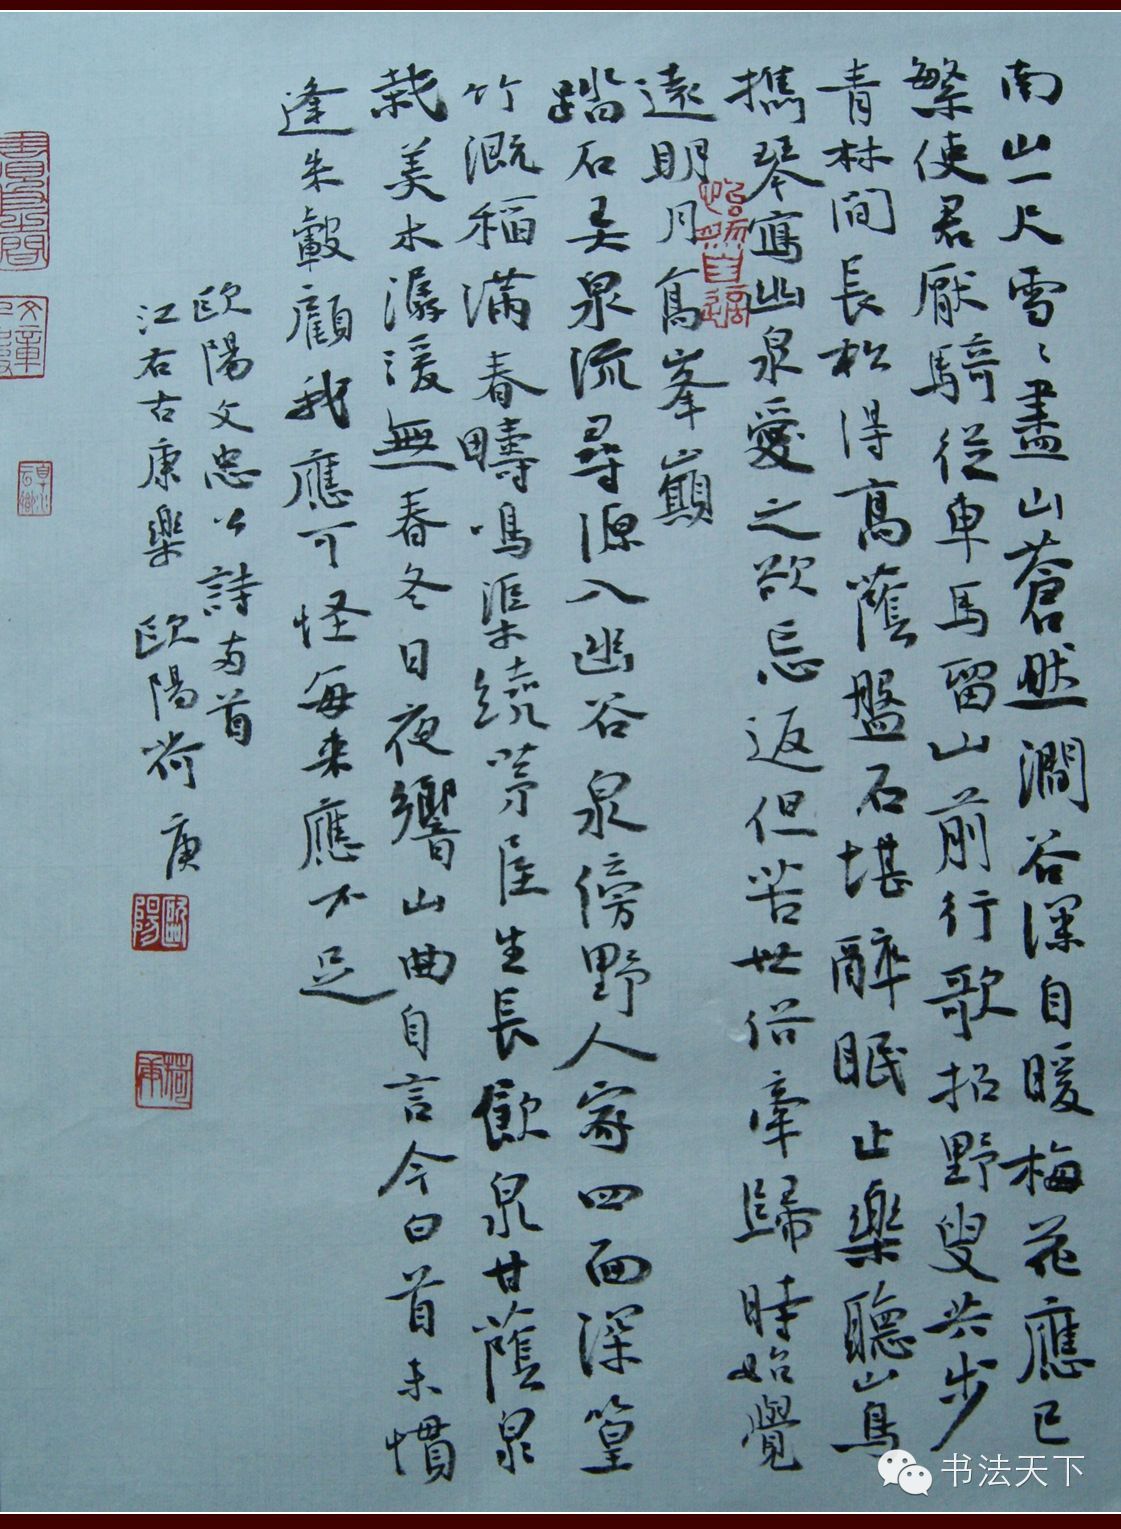 南山一尺雪雪盡山蒼然澗谷深自暖梅花應已
繁使君厭騎從車馬留山前行歌招野叟共步
青林間長松得高蔭盤石堪醉眠止樂聽山鳥
攜琴寫幽泉愛之欲忘返但苦世俗牽歸時始覺
遠明月高峯巔
踏石弄泉流尋源入幽谷泉傍野人家四面深篁
竹溉稻滿春疇鳴渠繞茅屋生長飲泉甘蔭泉
栽美木潺湲無春冬日夜響山曲自言今白首未慣
逢朱轂顧我應可怪每来應不足
歐陽文忠公詩两首
江右古康樂 歐陽荷庚
怡然自適
歐陽
荷庚
书法天下